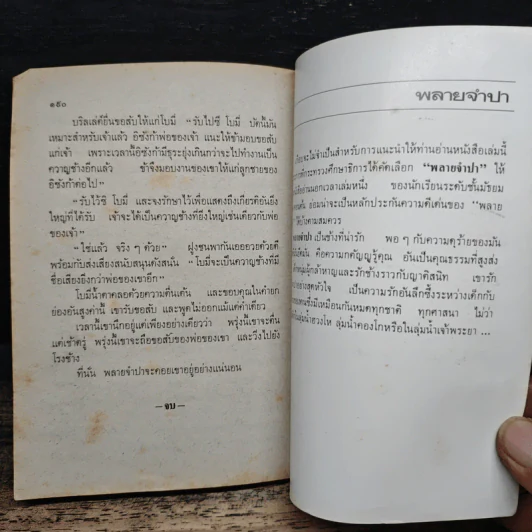 ๑๙๐
บริลเล่ค์ยื่นขอสับให้แก่โบมี่ “รับไปซี โบมี่ บัดนี้มัน
เหมาะสำหรับเจ้าแล้ว อิซังก้าพ่อของเจ้า แนะให้ข้ามอบขอสับ
แก่เจ้า เพราะเวลานี้อิซังก้ามีธุระยุ่งเกินกว่าจะไปทำงานเป็น
ควาญช้างอีกแล้ว ข้าจึงมอบงานของเขาให้แก่ลูกชายของ
อิซังก้าต่อไป”
“รับไว้ซี โบมี่ และจงรักษาไว้เพื่อแสดงถึงเกียรติอันยิ่ง
ใหญ่ที่ได้รับ เจ้าจะได้เป็นควาญช้างที่ยิ่งใหญ่เช่นเดียวกับพ่อ
ของเจ้า”
“ใช่แล้ว จริง ๆ ด้วย” ฝูงชนพากันเออออวยด้วยดี
พร้อมกับส่งเสียงสนับสนุนดังสนั่น “โบมี่จะเป็นควาญช้างที่มี
ชื่อเสียงยิ่งกว่าพ่อของเขาอีก”
โบมี่น้ำตาคลอด้วยความตื่นเต้น และขอบคุณในคำยก
ย่องอันสูงค่านี้ เขารับขอสับ และพูดไม่ออกแม้แต่คำเดียว
เวลานี้เขานึกอยู่แต่เพียงอย่างเดียวว่า พรุ่งนี้เขาจะตื่น
แต่เช้าตรู่ พรุ่งนี้เขาจะถือขอสับของพ่อของเขา และวิ่งไปยัง
โรงช้าง
ที่นั่น พลายจำปาจะคอยเขาอยู่อย่างแน่นอน
— จบ —
พลายจำปา
จะไม่จำเป็นสำหรับการแนะนำให้ท่านอ่านหนังสือเล่มนี้
กระทรวงศึกษาธิการได้คัดเลือก “พลายจำปา” ให้
อ่านนอกเวลาเล่มหนึ่ง ของนักเรียนระดับชั้นมัธยม
ย่อมน่าจะเป็นหลักประกันความดีเด่นของ “พลาย
ได้บ้างตามสมควร
เป็นช้างที่น่ารัก พอ ๆ กับความดุร้ายของมัน
คือความกตัญญูรู้คุณ อันเป็นคุณธรรมที่สูงส่ง
ผู้กล้าหาญและรักช้างราวกับญาติสนิท เขารัก
อย่างสุดหัวใจ เป็นความรักอันลึกซึ้งระหว่างเด็กกับ
ซึ่งมีเหมือนกันหมดทุกชาติ ทุกศาสนา ไม่ว่า
ลุ่มน้ำคองโกหรือในลุ่มน้ำเจ้าพระยา ...